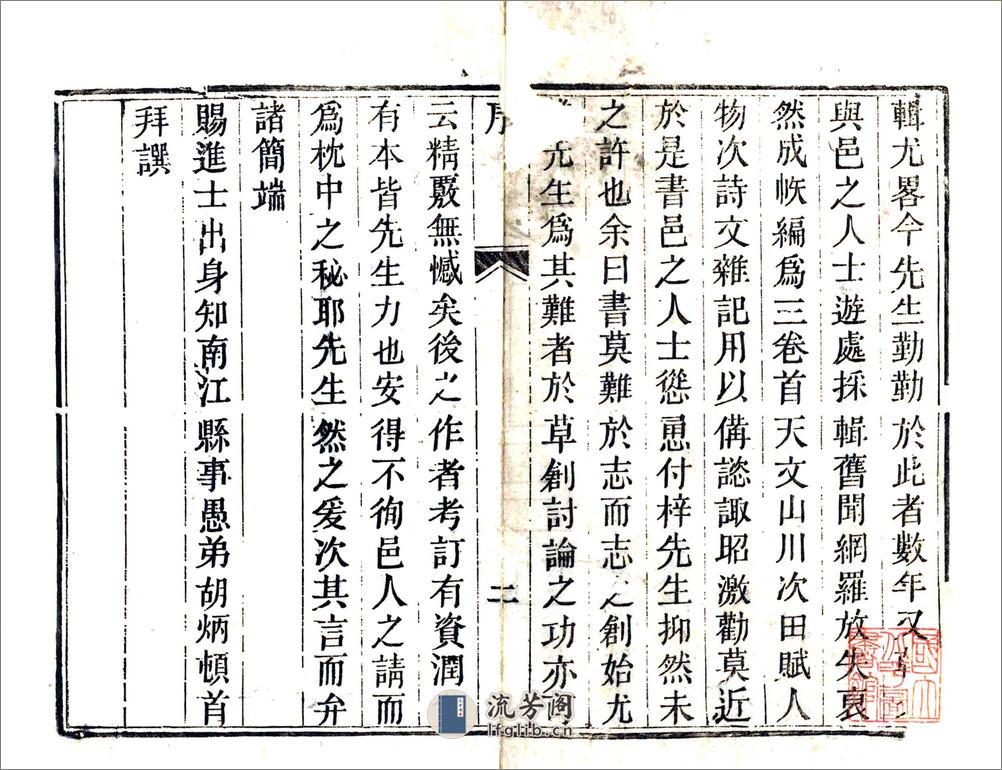 輯尤畧今先生勤勤於此者數年又
與邑之人士遊處採輯舊聞網羅放失裒
然成帙編爲三卷首天文山川次田賦人
物次詩文雜記用以備諮諏昭激勸莫近
於是書邑之人士慫恿付梓先生抑然未
之許也余曰書莫難於志而志之創始尤
先生爲其難者於草創討論之功亦
序
二
云精覈無憾矣後之作者考訂有資潤
有本皆先生力也安得不徇邑人之請而
爲枕中之秘耶先生然之爰次其言而弁
諸簡端
賜進士出身知南江縣事愚弟胡炳頓首
拜譔
流芳阁
lfglib.cn